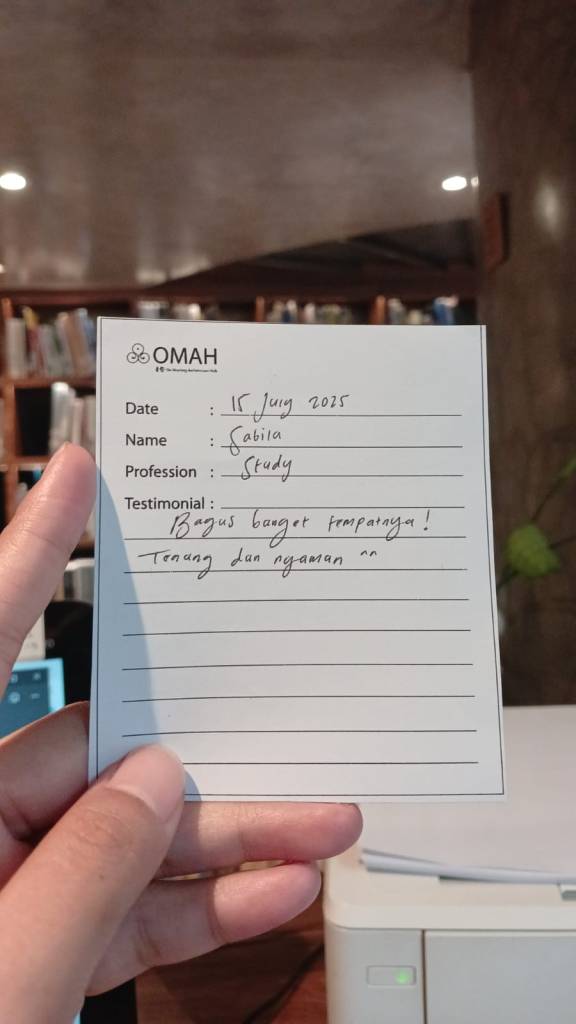 OMAH
Date : 15 July 2025
Name : Sabila
Profession : Study
Testimonial :
Bagus banget tempatnya!
Tenang dan nyaman ^^